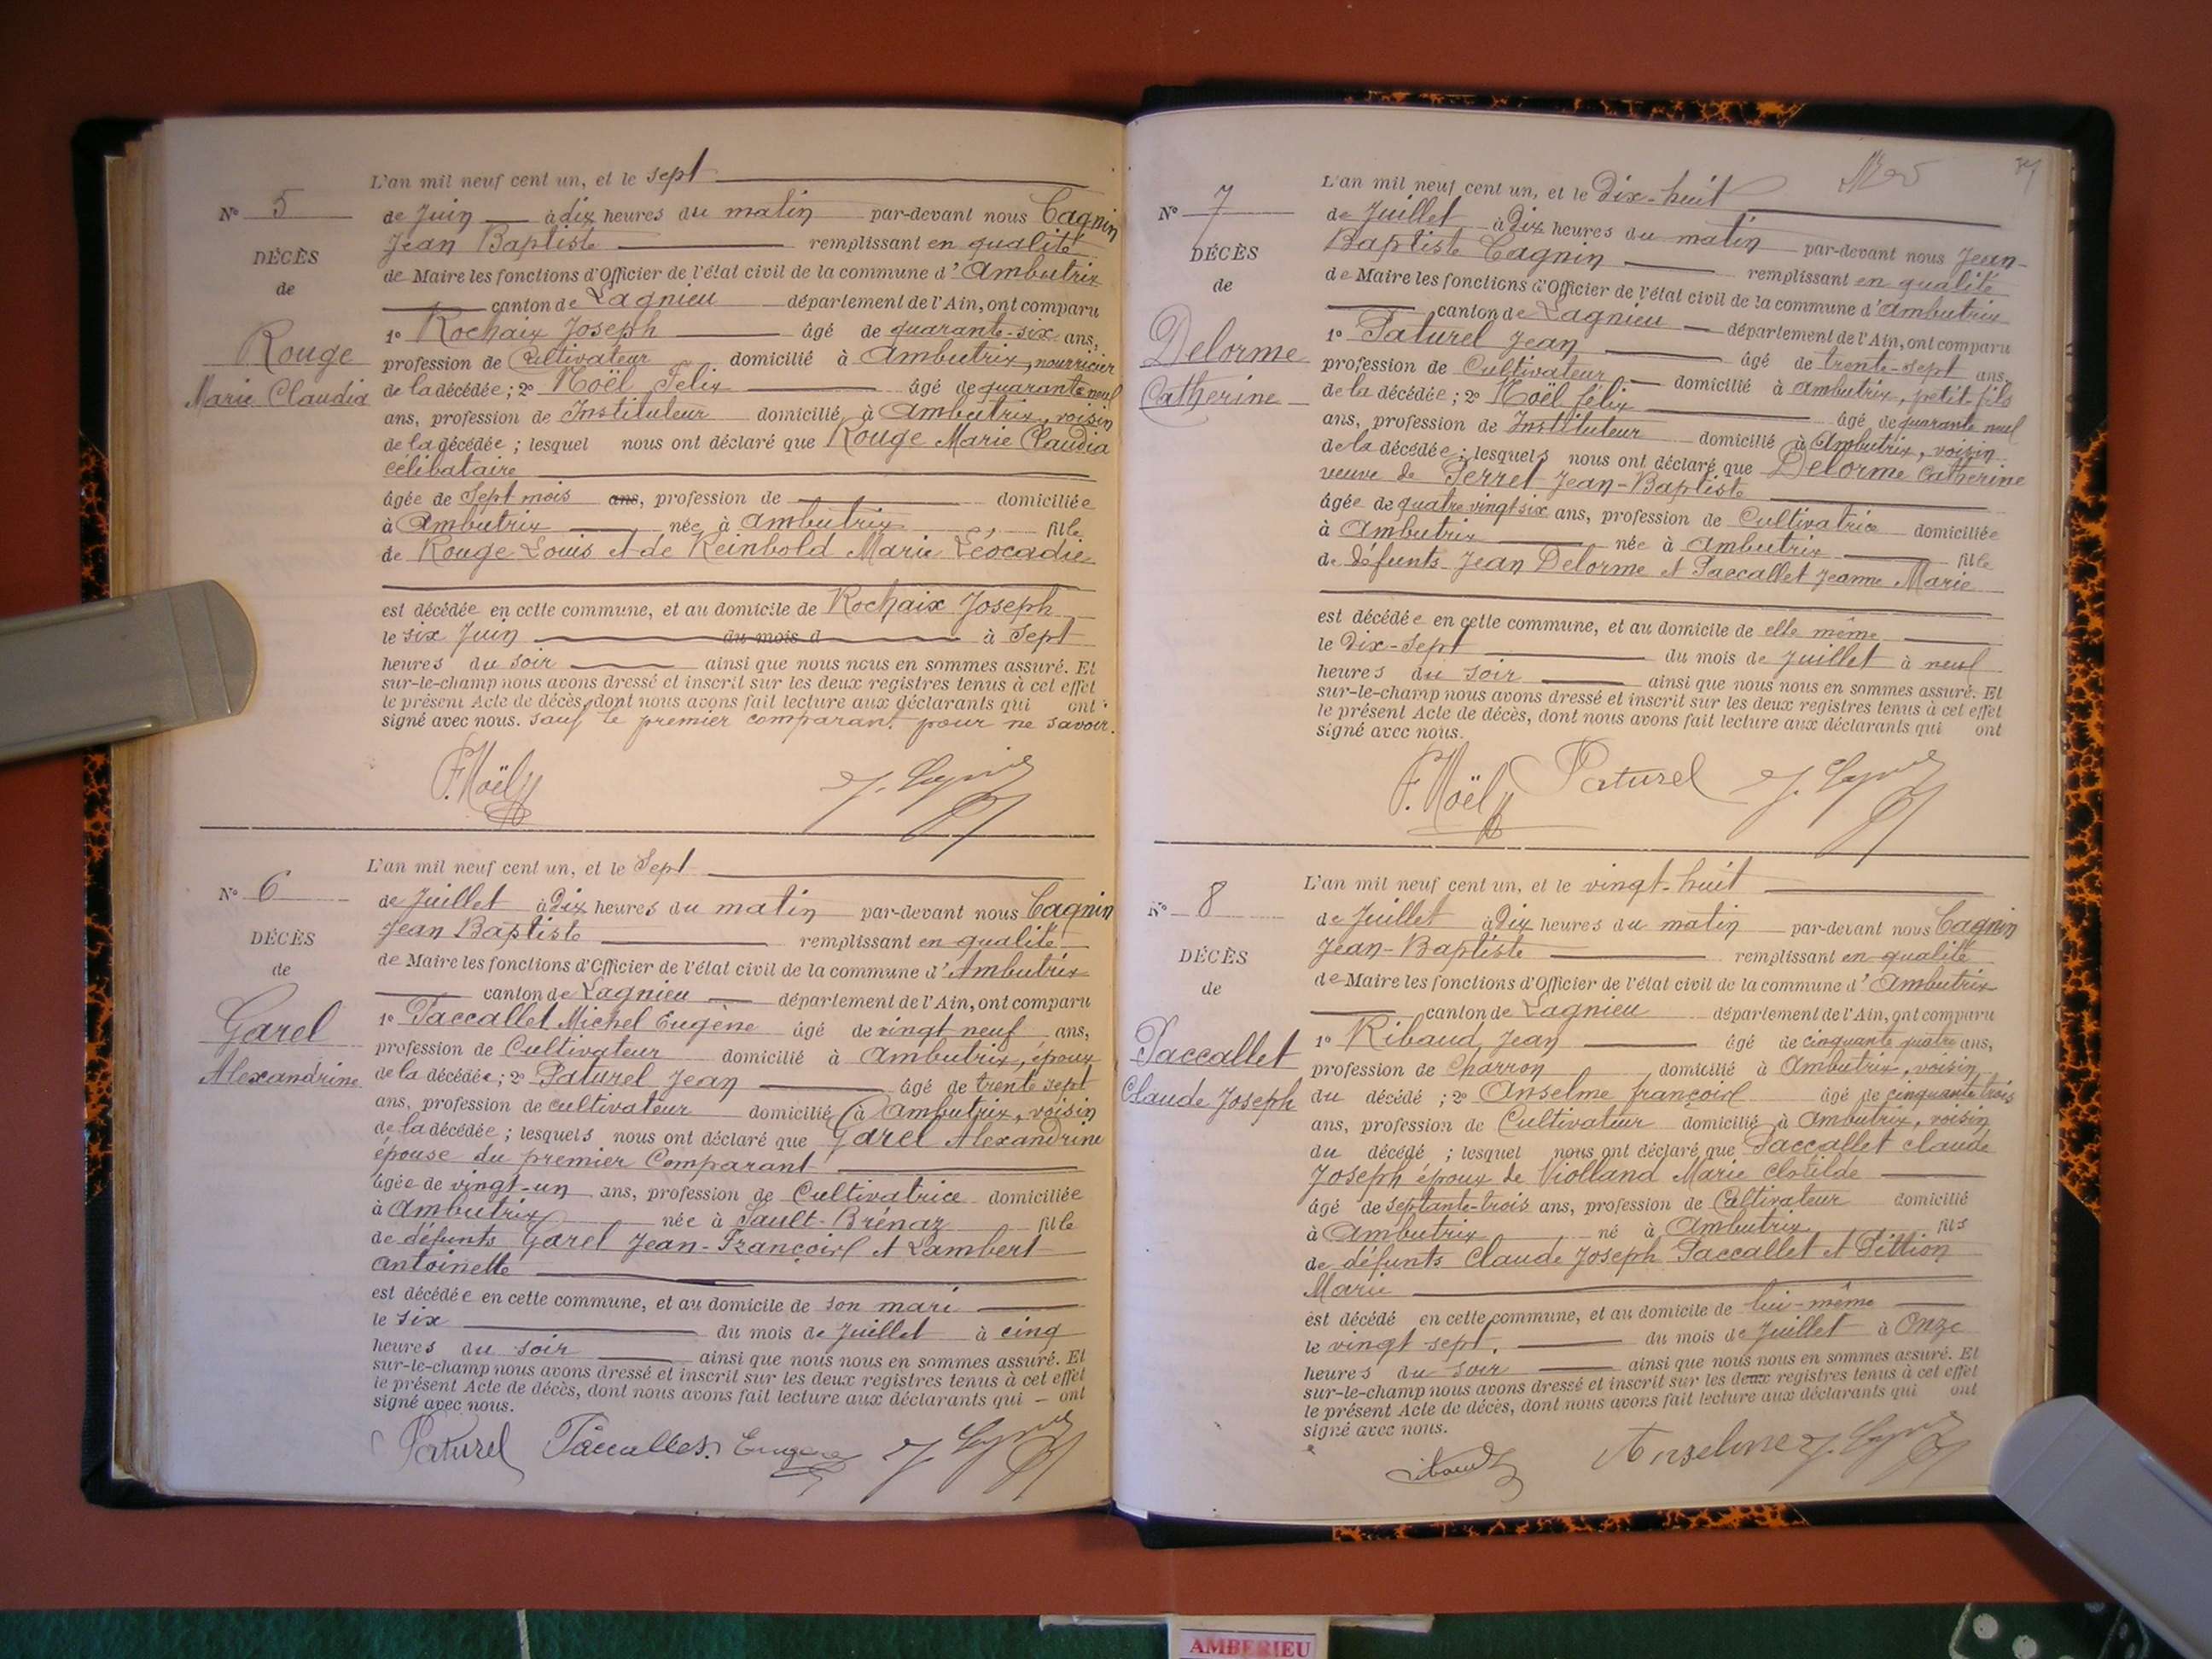 L'an mil neuf cent un, et le sept
N° 5
de Juin à dix heures du matin par-devant nous Cagnin
Jean Baptiste remplissant en qualité
DÉCÈS
de Maire les fonctions d'Officier de l'état civil de la commune d'Ambutrix
de
canton de Lagnieu département de l'Ain, ont comparu
1° Rochaix Joseph âgé de quarante-six ans,
Rouge
profession de Cultivateur domicilié à Ambutrix, nourricier
Marie Claudia
de la décédée; 2° Noël Félix âgé de quarante neuf
ans, profession de Instituteur domicilié à Ambutrix, voisin
de la décédée; lesquel nous ont déclaré que Rouge Marie Claudia
célibataire
âgée de Sept mois ans, profession de domiciliée
à Ambutrix née à Ambutrix fille
de Rouge Louis et de Reinbold Marie Léocadie
est décédée en cette commune, et au domicile de Rochaix Joseph
le six Juin du mois d à Sept
heures du soir ainsi que nous nous en sommes assuré. Et
sur-le-champ nous avons dressé et inscrit sur les deux registres tenus à cet effet
le présent Acte de décès, dont nous avons fait lecture aux déclarants qui ont
signé avec nous. sauf le premier comparant pour ne savoir.
F. Noël J. Cagnin
L'an mil neuf cent un, et le Sept
N° 6
de Juillet à Dix heures du matin par-devant nous Cagnin
Jean Baptiste remplissant en qualité
DÉCÈS
de Maire les fonctions d'Officier de l'état civil de la commune d'Ambutrix
de
canton de Lagnieu département de l'Ain, ont comparu
1° Paccallet Michel Eugène âgé de vingt neuf ans,
Garel
profession de Cultivateur domicilié à Ambutrix, époux
Alexandrine
de la décédée; 2° Paturel Jean âgé de trente sept
ans, profession de cultivateur domicilié à Ambutrix, voisin
de la décédée; lesquels nous ont déclaré que Garel Alexandrine
épouse du premier Comparant
âgée de vingt-un ans, profession de Cultivatrice domiciliée
à Ambutrix née à Sault-Brénaz fille
de défunts Garel Jean-François et Lambert
Antoinette
est décédée en cette commune, et au domicile de son mari
le six du mois de Juillet à cinq
heures du soir ainsi que nous nous en sommes assuré. Et
sur-le-champ nous avons dressé et inscrit sur les deux registres tenus à cet effet
le présent Acte de décès, dont nous avons fait lecture aux déclarants qui - ont
signé avec nous.
Paturel Paccallet Eugène J. Cagnin
L'an mil neuf cent un, et le Dix-huit
N° 7
de Juillet à Dix heures du matin par-devant nous Jean-
Baptiste Cagnin remplissant en qualité
DÉCÈS
de Maire les fonctions d'Officier de l'état civil de la commune d'Ambutrix
de
canton de Lagnieu département de l'Ain, ont comparu
1° Paturel Jean âgé de trente-sept ans,
Delorme
profession de Cultivateur domicilié à Ambutrix, petit fils
Catherine
de la décédée; 2° Noël félix âgé de quarante neuf
ans, profession de Instituteur domicilié à Ambutrix, voisin
de la décédée; lesquels nous ont déclaré que Delorme Catherine
veuve de Perret Jean-Baptiste
âgée de quatre vingt six ans, profession de Cultivatrice domiciliée
à Ambutrix née à Ambutrix fille
de défunts Jean Delorme et Paccallet Jeanne Marie
est décédée en cette commune, et au domicile de elle même
le Dix-Sept du mois de Juillet à neuf
heures du soir ainsi que nous nous en sommes assuré. Et
sur-le-champ nous avons dressé et inscrit sur les deux registres tenus à cet effet
le présent Acte de décès, dont nous avons fait lecture aux déclarants qui ont
signé avec nous.
F. Noël Paturel J. Cagnin
L'an mil neuf cent un, et le vingt-huit
N° 8
de Juillet à Dix heures du matin par-devant nous Cagnin
Jean-Baptiste remplissant en qualité
DÉCÈS
de Maire les fonctions d'Officier de l'état civil de la commune d'Ambutrix
de
canton de Lagnieu département de l'Ain, ont comparu
1° Ribaud Jean âgé de cinquante quatre ans,
Paccallet
profession de Charron domicilié à Ambutrix, voisin
Claude Joseph
du décédé; 2° Anselme françois âgé de cinquante trois
ans, profession de Cultivateur domicilié à Ambutrix, voisin
du décédé; lesquel nous ont déclaré que Paccallet Claude
Joseph époux de Violland Marie Clotilde
âgé de septante-trois ans, profession de Cultivateur domicilié
à Ambutrix né à Ambutrix fils
de défunts Claude Joseph Paccallet et Dittion
Marie
est décédé en cette commune, et au domicile de lui-même
le vingt sept. du mois de Juillet à Onze
heures du soir ainsi que nous nous en sommes assuré. Et
sur-le-champ nous avons dressé et inscrit sur les deux registres tenus à cet effet
le présent Acte de décès, dont nous avons fait lecture aux déclarants qui ont
signé avec nous.
Ribaud Anselme J. Cagnin
AMBERIEU